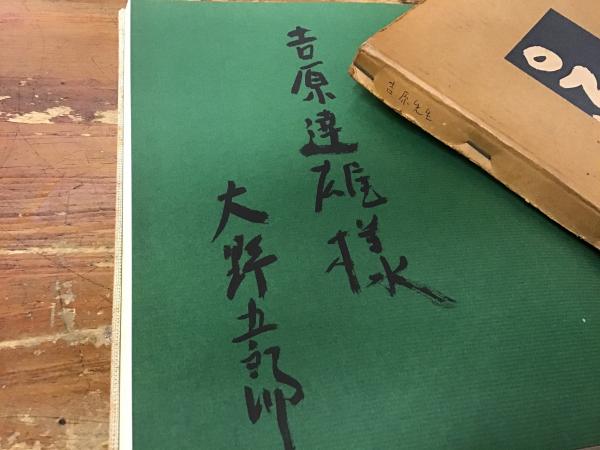 吉原達雄様
大野五郎
吉原先生